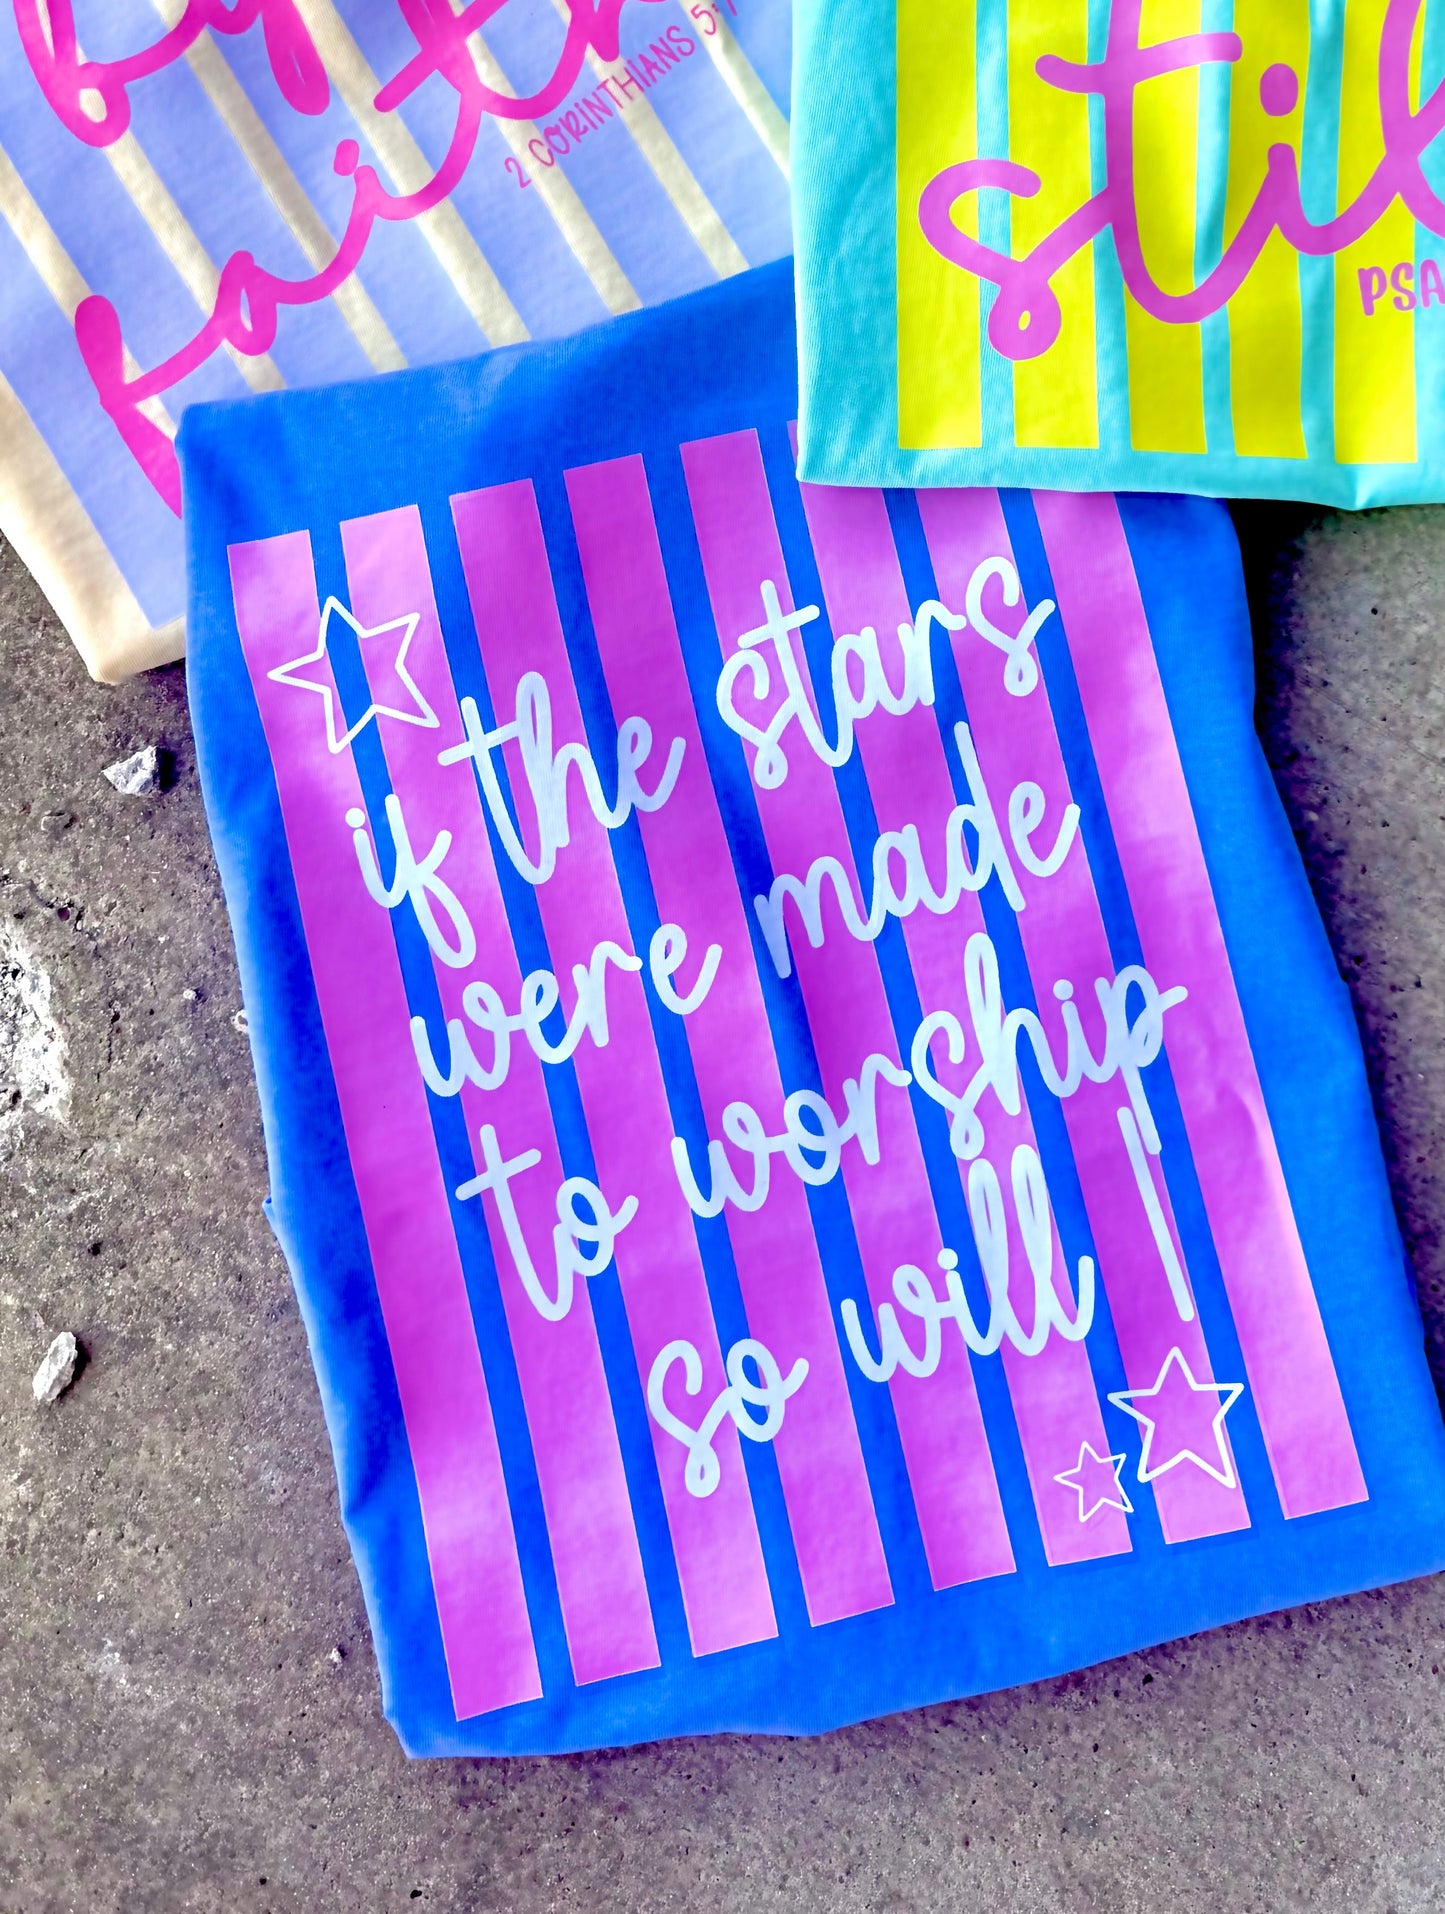 by
faith
2 CORINTHIANS 5:
still
PSA
if the stars
were made
to worship
so will I